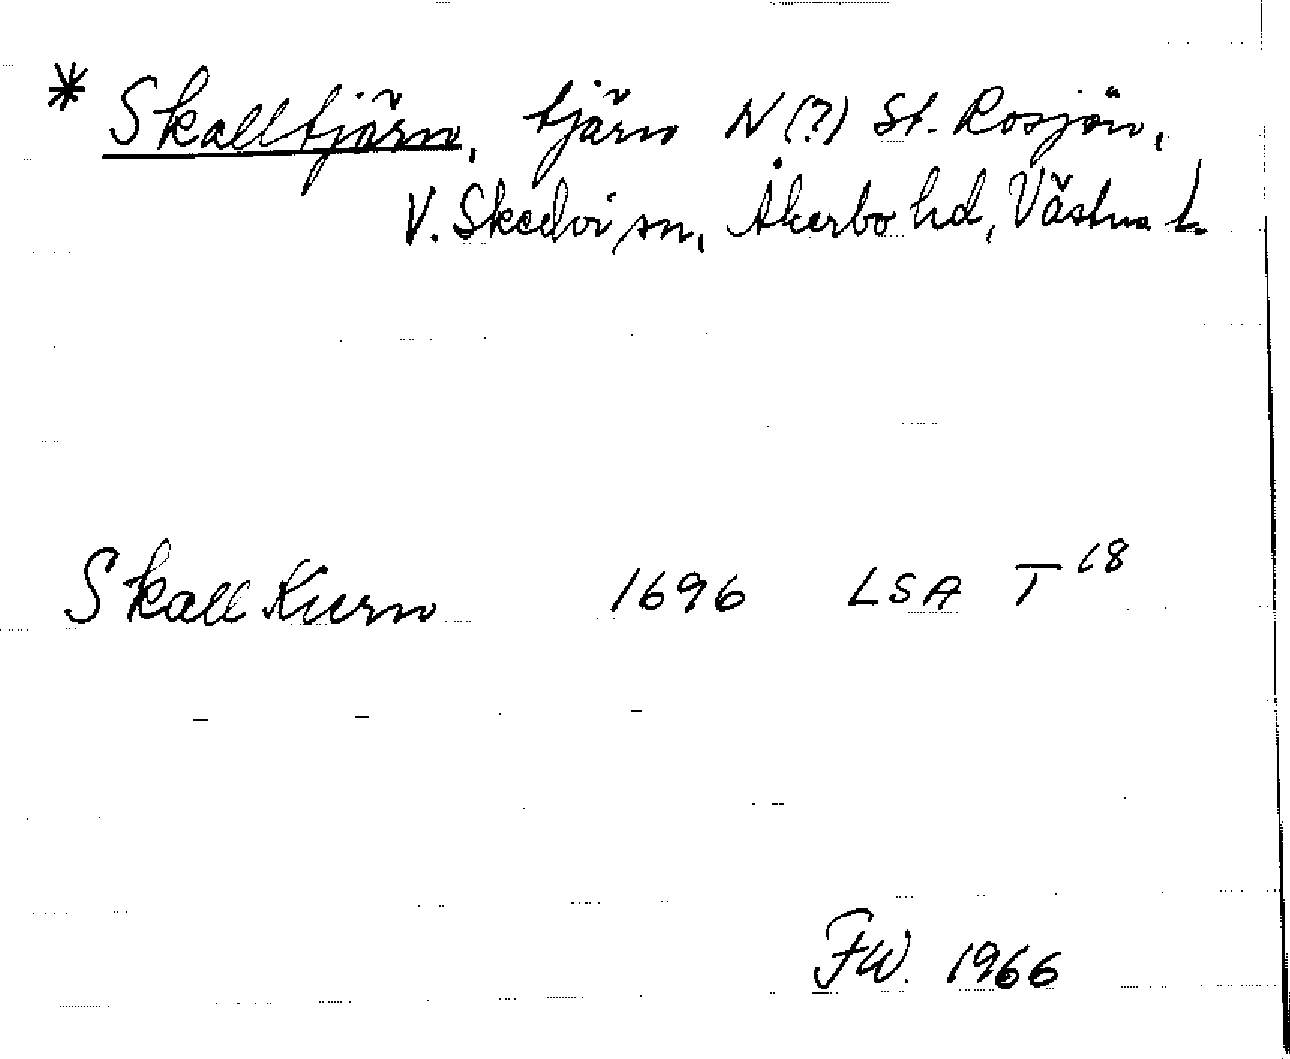 * Skalltjärn, tjärn N(?) St. Rosjön,
V. Skedvi sn, Åkerbo hd, Västm. l.
Skall Kiern 1696 LSA T 18
FW. 1966